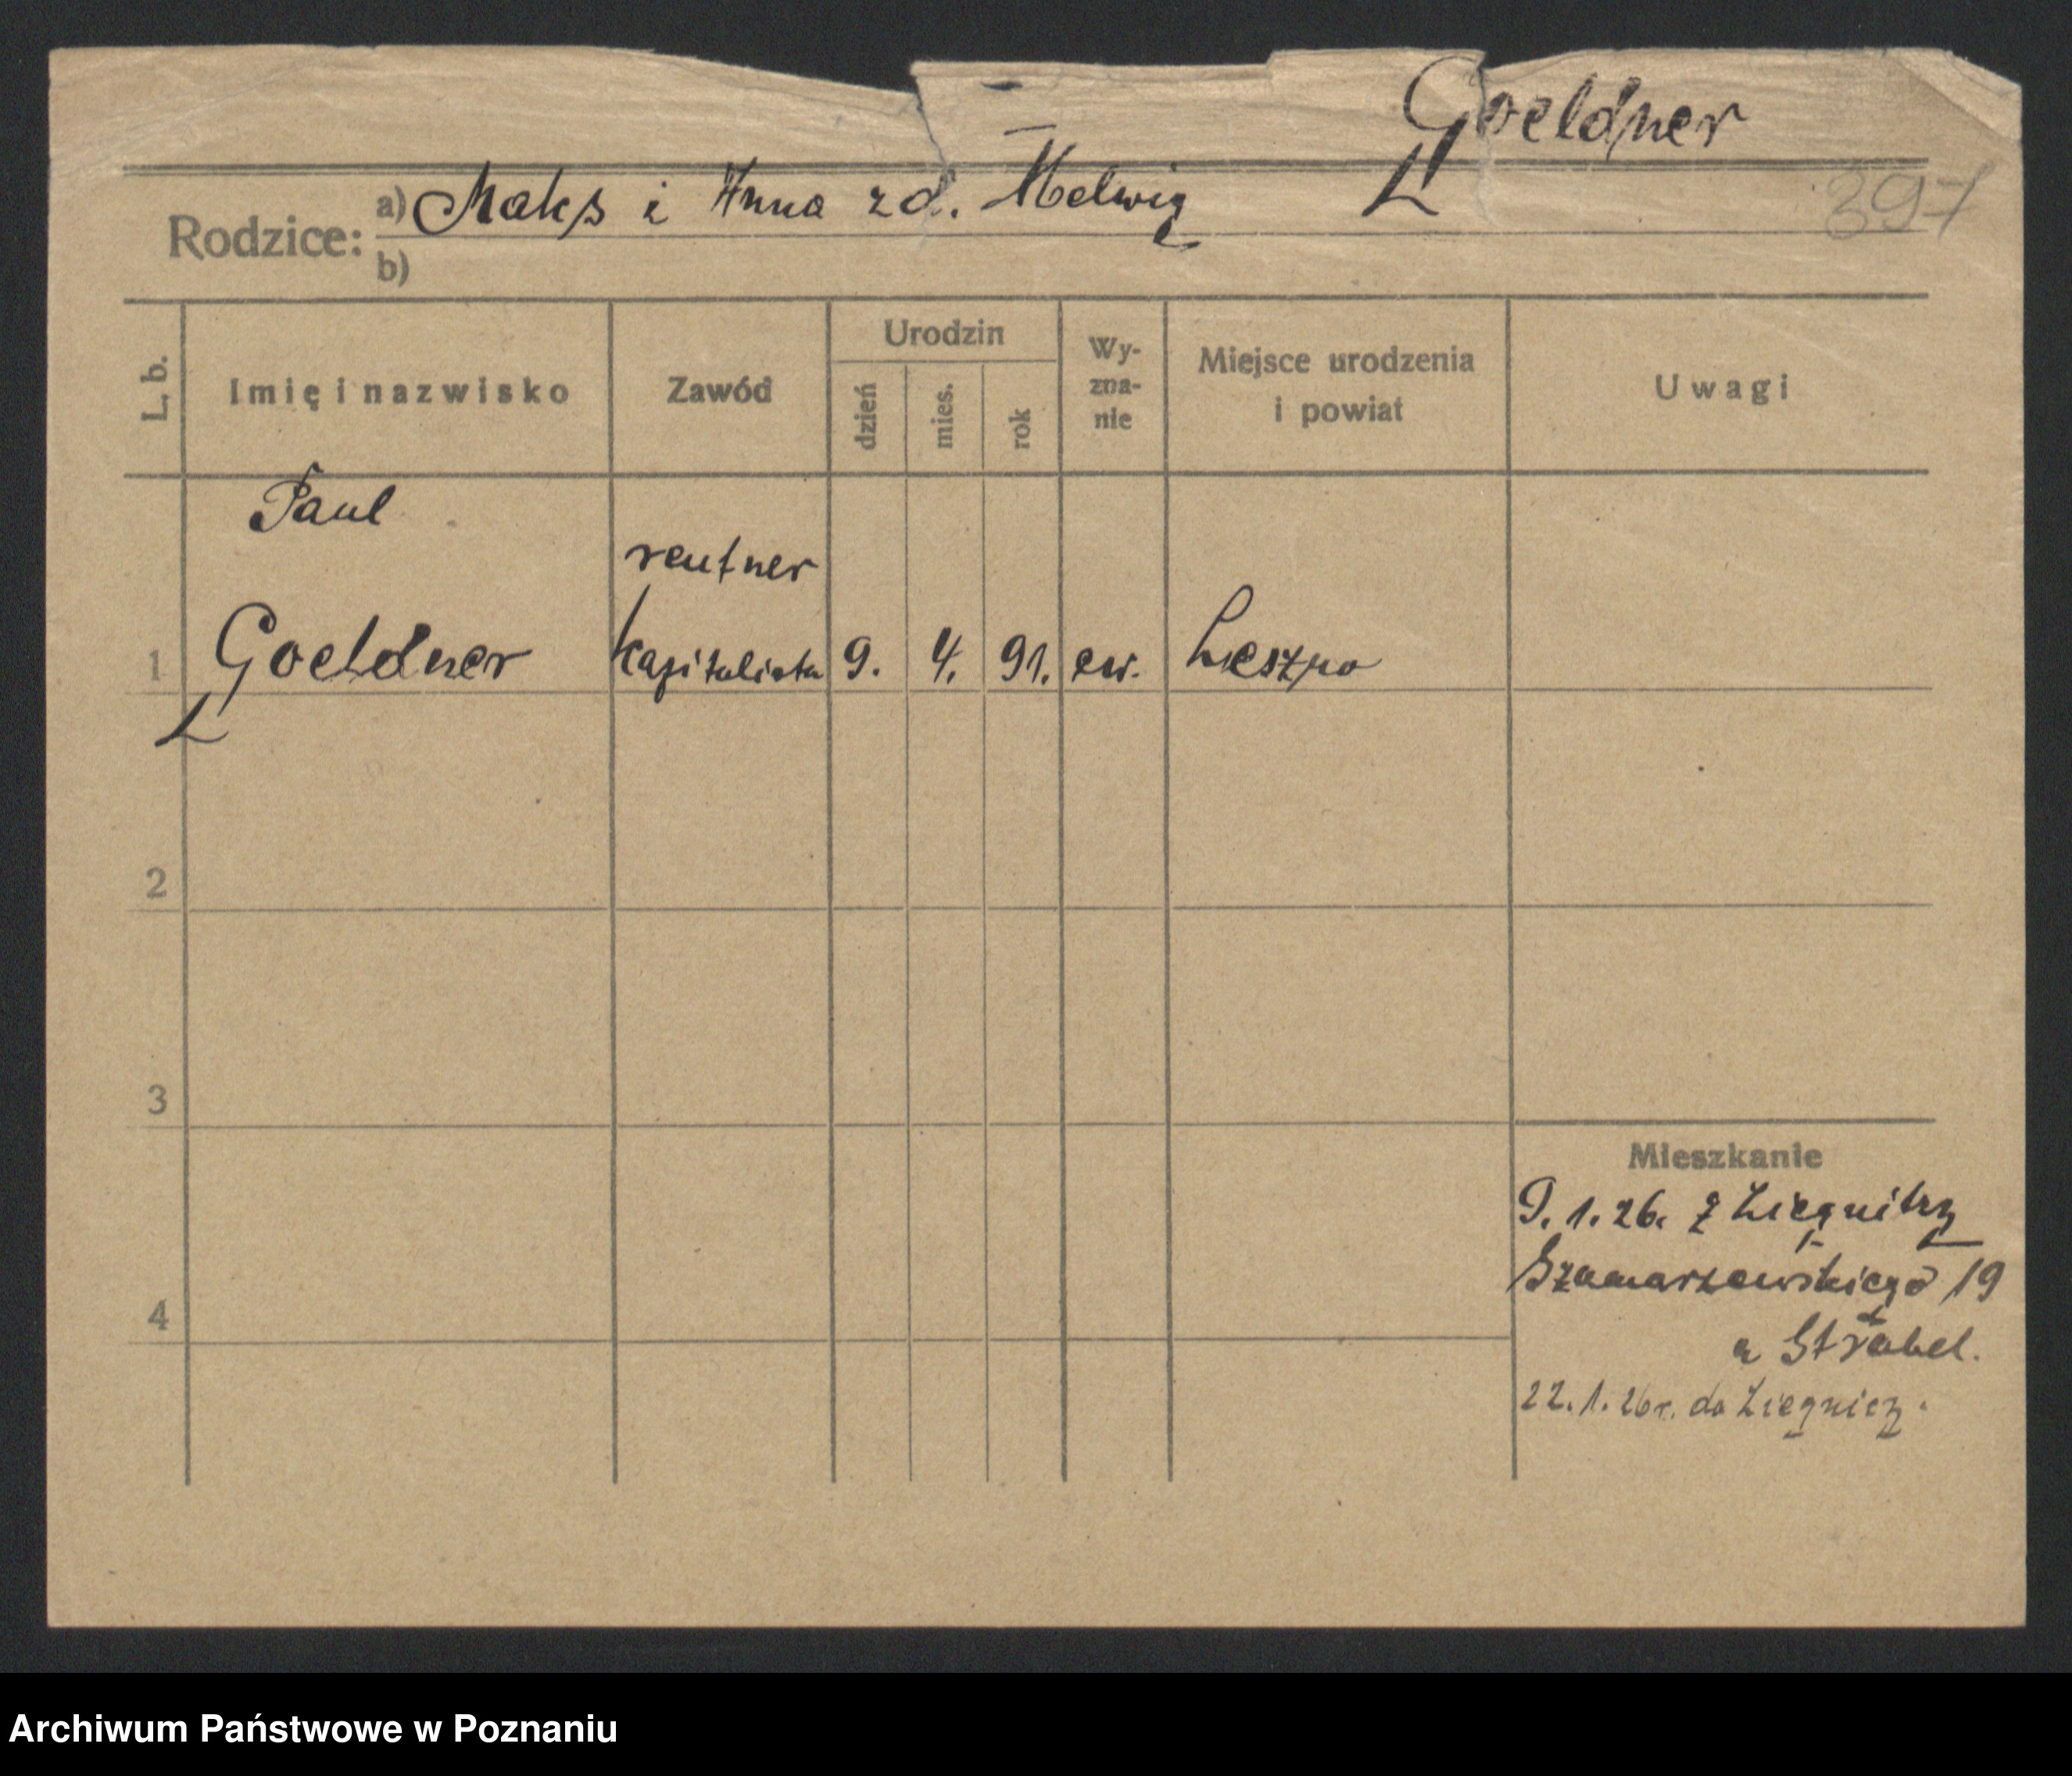 Goeldner
397
Rodzice: a) Maks i Anna zd. Helwig
b)
L. b.
Imię i nazwisko
Zawód
Urodzin
dzień
mies.
rok
Wy-
zna-
nie
Miejsce urodzenia
i powiat
Uwagi
Paul
rentner
1 Goeldner kapitalista 9. 4. 91. ew. Leszno
2
3
4
Mieszkanie
9. 1. 26. z Liegnitz
Szamarzewskiego 19
u Strabel.
22. 1. 26 r. do Liegnicy.
Archiwum Państwowe w Poznaniu